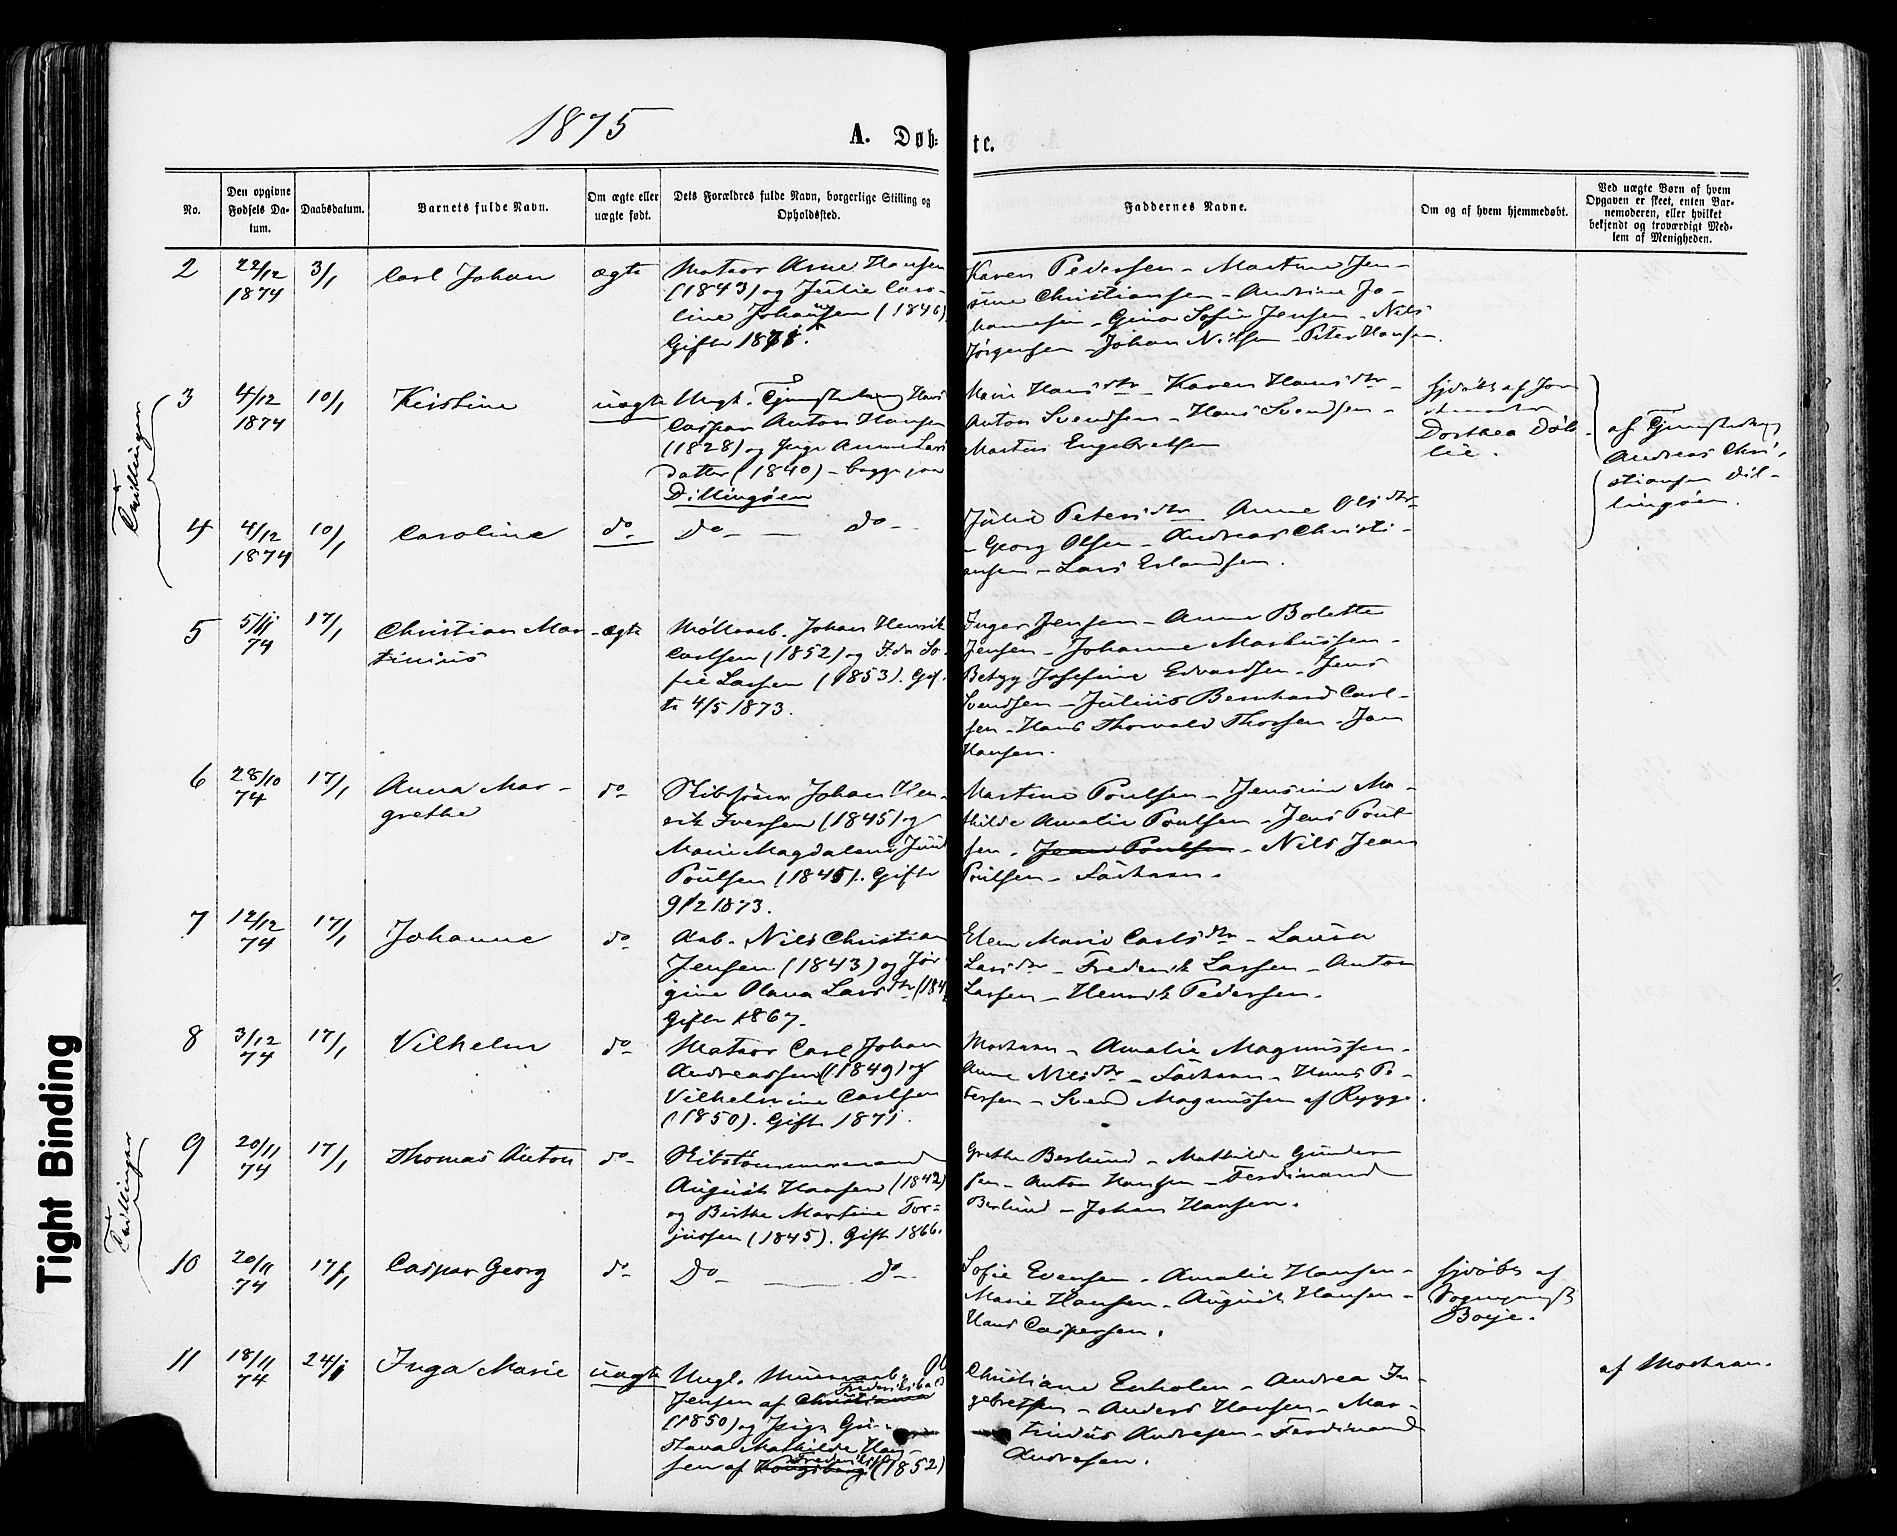 1875
A. Døb= te.
No.
Den opgivne Fødsels Da-tum.
Daabsdatum.
Barnets fulde Navn.
Om ægte eller uægte født.
Dets Forældres fulde Navn, borgerlige Stilling og Opholdssted.
Faddernes Navne.
Om og af hvem hjemmedøbt.
Ved uægte Børn af hvem Opgaven er skeet, enten Bar-nemoderen, eller hvilket bekjendt og troværdigt Med-lem af Menigheden.
2 22/12 1874 3/1 Carl Johan ægte
Matros Arne Hansen
(1843) og Julie Caro-
line Johannsen (1846)
Gifte 1871.
Karen Pedersen - Martine Jen-
sine Christiansen - Andrine Jo-
hannesen - Gina Sofie Jensen - Nils
Jørgensen - Johan Nilsen - Peter Hansen.
Tvillinger
3 4/12 1874 10/1 Kristine uægte
Ungk. Hans
Caspar Anton Hansen
(1828) og Pige Anne Lars
datter (1840) - begge paa
Dillingøen
Marie Hansdtr - Karen Hansdtr -
Anton Svendsen - Hans Svendsen -
Martin Engebretsen
hjdøbt af Jor
demoder
Dorthea Døb-
lie.
af
Andreas Chri-
stiansen Dil-
lingøen.
4 4/12 1874 10/1 Caroline do
Do - do -
Julie Petersdtr - Anne Olsdtr -
- Georg Olsen - Andreas Christi-
ansen - Lars Erlandsen.
5 5/11 74 17/1 Christian Mar-
tinius
ægte
Møllearb. Johan Henrik
Carlsen (1852) og Ida So-
fie Larsen (1853). Gif-
te 4/5 1873.
Inger Jensen - Anne Bolette
Jensen - Johanne Markussen -
Betzy Josefine Edvardsen - Jens
Svendsen - Julius Bernhard Carl-
sen - Hans Thorvald Thorsen - Jan
Hansen.
6 28/10 74 17/1 Anna Mar-
grethe
do
Skibsfører Johan Hen-
rik Iversen (1845) og
Marie Magdalene Juul
Poulsen (1845). Gifte
9/2 1873.
Martine Poulsen - Jensine Ma-
thilde Amalie Poulsen - Jens Poul-
sen - Jean Poulsen - Nils Jean
Poulsen - Faderen.
7 12/12 74 17/1 Johanne do
Arb. Nils Christian
Jensen (1843) og Jør
gine Olava Larsdtr (184
Gifte 1867.
Elen Marie Carlsdtr - Laura
Larsdtr - Frederik Larsen - Anton
Larsen - Henrik Pedersen.
8 3/12 74 17/1 Vilhelm do
Matros Carl Johan
Andreassen (1849) og
Vilhelmine Carlsen
(1850). Gifte 1871.
Moderen - Amalie Magnussen -
Anne Nilsdtr - Faderen - Hans Pe-
tersen - Svend Magnussen af Rygge.
Tvillinger
9 20/11 74 17/1 Thomas Anton do
Skibstømmermand
August Hansen (1842)
og Birthe Martine Tor-
jussen (1845). Gift 1866.
Grethe Berlund - Mathilde Gunder-
sen - Anton Hansen - Ferdinand
Berlund - Johan Hansen.
10 20/11 74 17/1 Caspar Georg do
Do - do -
Sofie Evensen - Amalie Hansen -
Marie Hansen - August Hansen -
Hans Caspersen.
hjdøbt af
Sognepræst
Boeje.
11 18/11 74 24/1 Inga Marie uægte
Ungk. Murerarb.
Jensen af Christiania Frederikshald
(1850) og Pige Gu-
stava Mathilde Han-
sen af Kongsberg (1852)
Christiane Enholen - Andrea In-
gebretsen - Anders Hansen - Mar-
tinius Andresen - Ferdinand
Andresen.
af Moderen.
Tight Binding